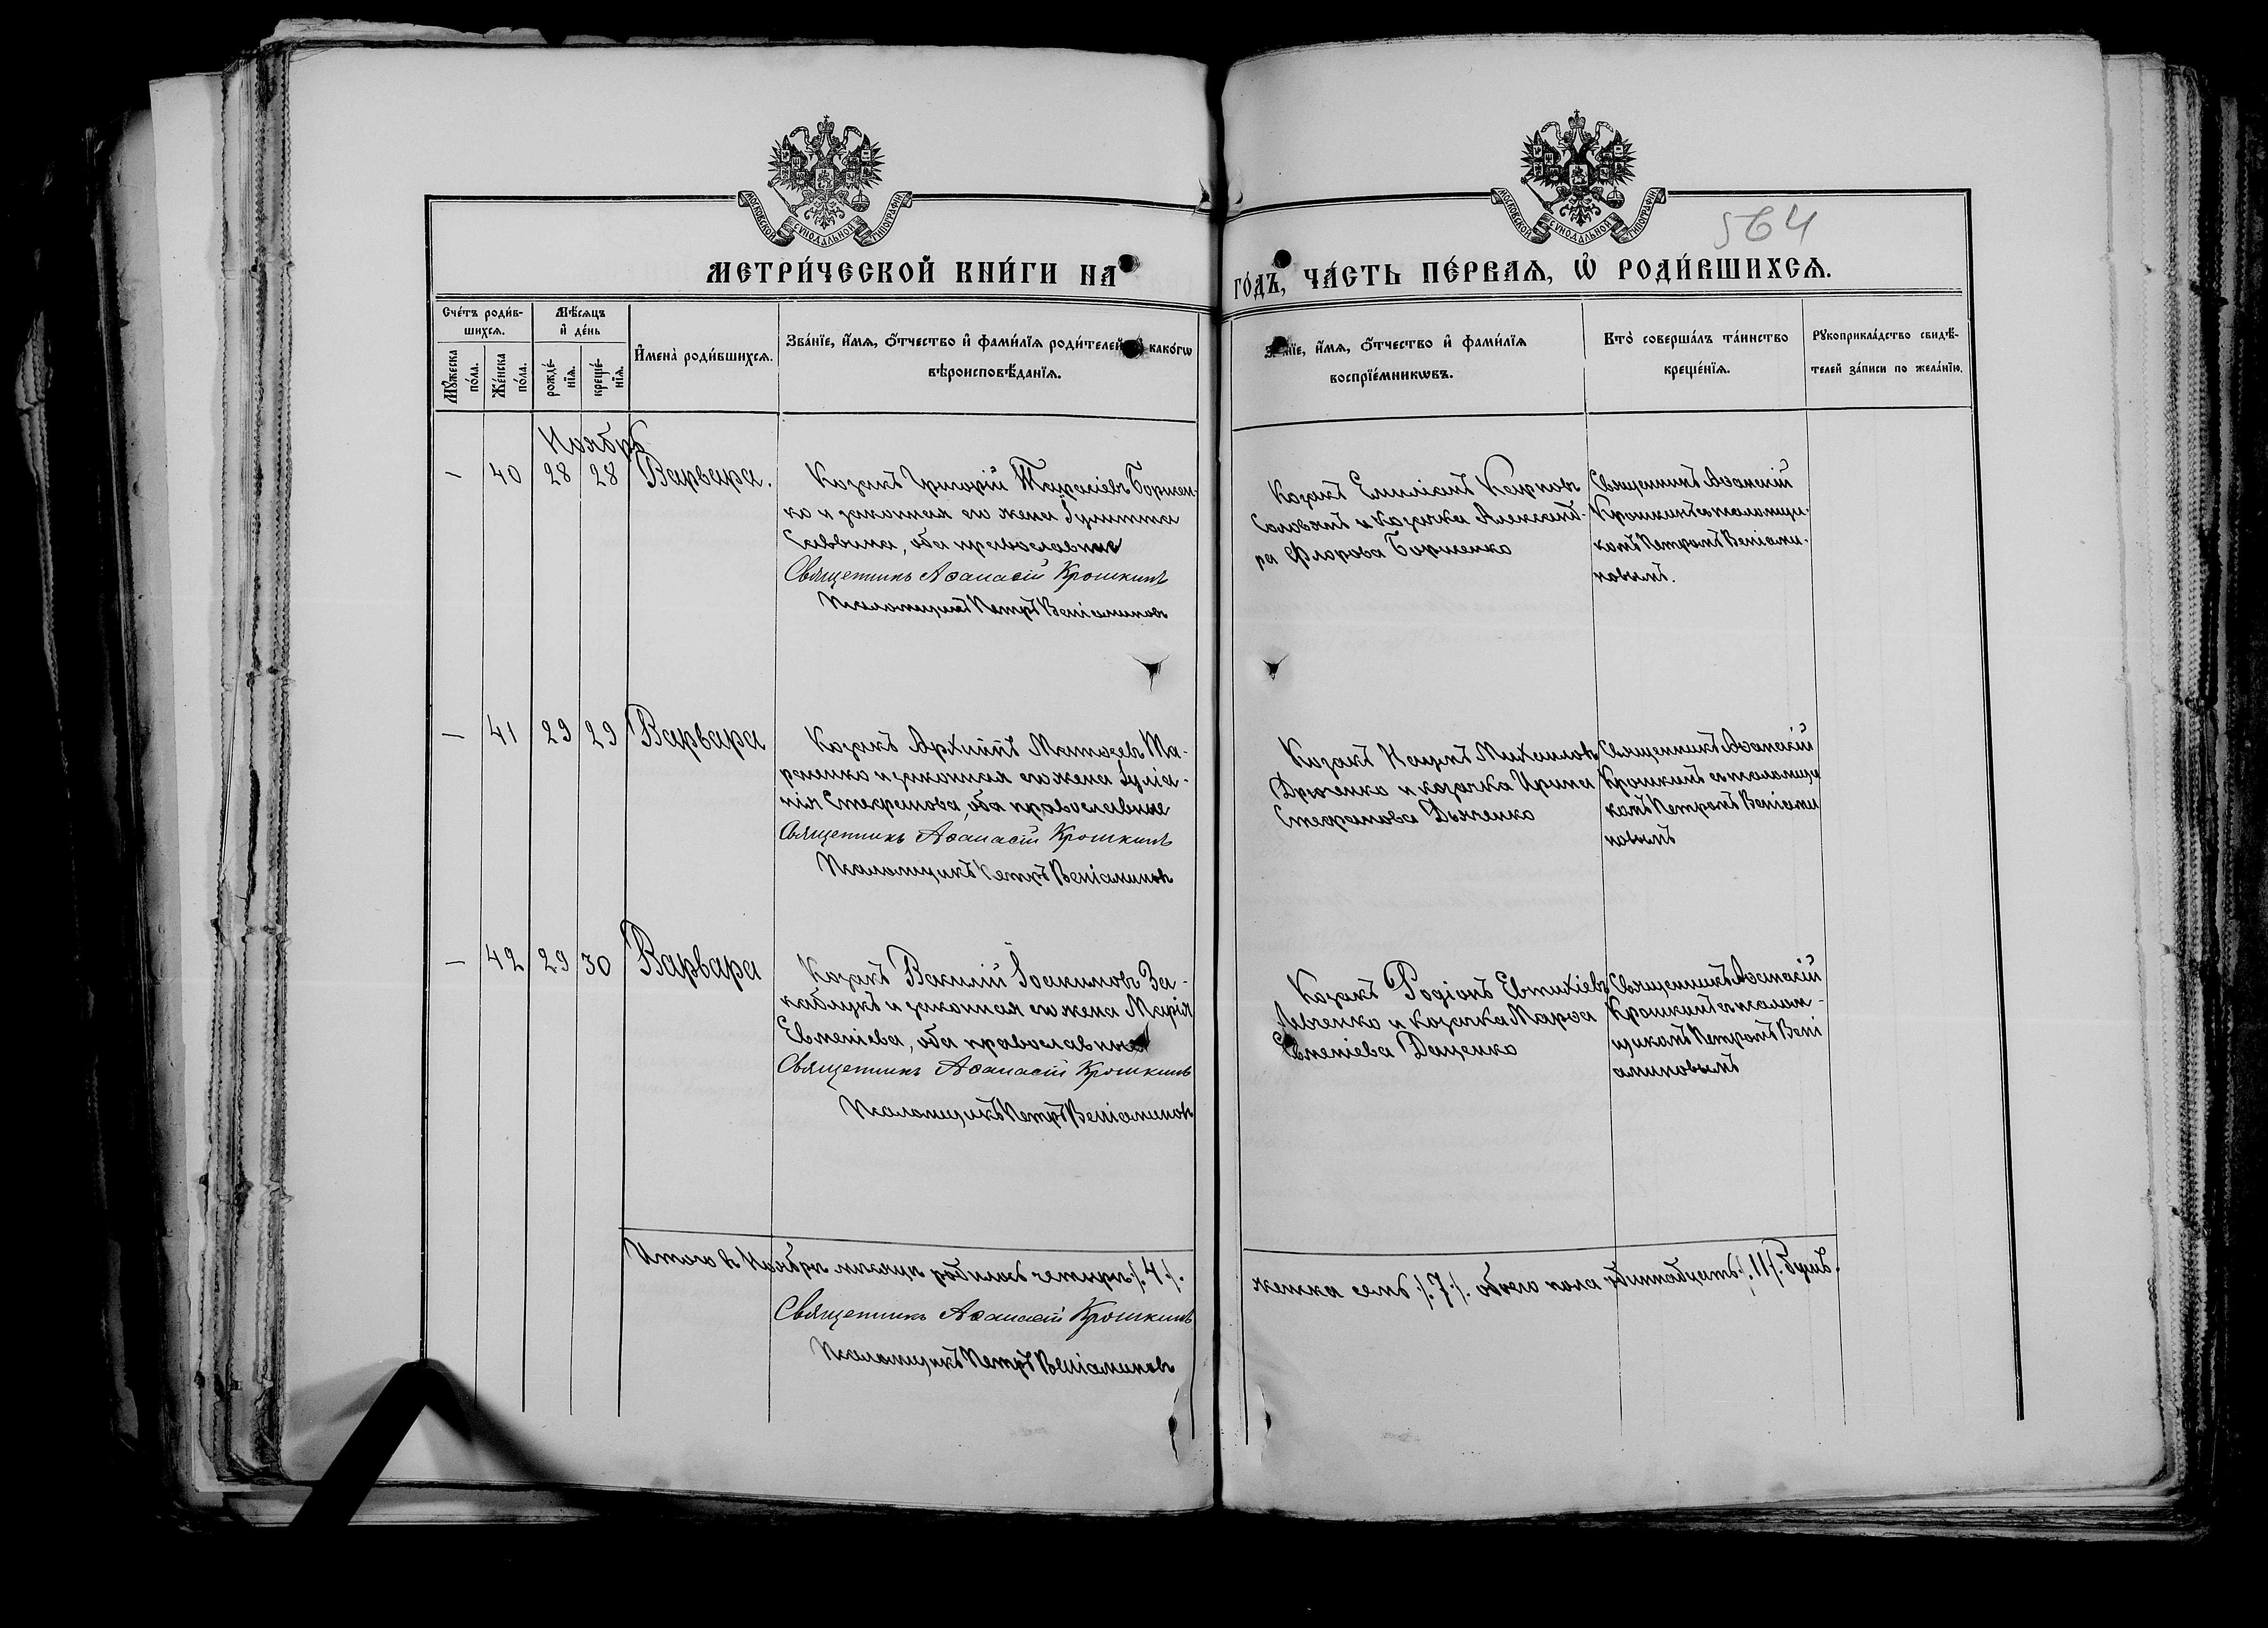 МОСКОВСКОЙ СѴНОДАЛЬНОЙ ТИПОГРАФІИ
МОСКОВСКОЙ СѴНОДАЛЬНОЙ ТИПОГРАФІИ
564
МЕТРИ́ЧЕСКОЙ КНИ́ГИ НА
ГО́ДЪ, ЧА́СТЬ ПЕ́РВАЯ, Ѡ҆ РОДИ́ВШИХСЯ.
Сче́тъ роди́в-
шихся.
Мѣ́сяцъ
и҆ де́нь
Мꙋ́жеска
по́ла.
Же́нска
по́ла.
рожде́-
нїя.
креще́-
нїя.
И҆мена̀ роди́вшихся.
Зва́нїе, и҆́мя, ѻ҆́тчество и҆ фами́лїя роди́телей, како́гѡ
вѣроисповѣ́данїя.
нїе, и҆́мя, ѻ҆́тчество и҆ фами́лїя
воспрїе́мникѡвъ.
Кто̀ соверша́лъ та́инство
креще́нїя.
Рꙋкоприкла́дство свидѣ́-
телей за́писи по жела́нїю.
Ноябрь
— 40 28 28 Варвара.
Козакъ Григорій Тарасіевъ Бормен-
ко и законная его жена Іулитта
Саввина, оба православные
Священникъ Аѳанасій Крошкинъ
Псаломщикъ Петръ Веніаминовъ
Козакъ Емиліанъ Карповъ
Соловый и козачка Александ-
ра Флорова Борменко
Священникъ Аѳанасій
Крошкинъ съ псаломщи-
комъ Петромъ Веніами-
новымъ.
— 41 29 29 Варвара
Козакъ Архиппъ Матѳеевъ Та-
раненко и законная его жена Іуліа-
нія Стефанова, оба православные
Священникъ Аѳанасій Крошкинъ
Псаломщикъ Петръ Веніаминовъ
Козакъ Наумъ Михаиловъ
Дяченко и козачка Ирина
Стефанова Дьяченко
Священникъ Аѳанасій
Крошкинъ съ псаломщи
комъ Петромъ Веніами
новымъ
— 42 29 30 Варвара
Козакъ Василій Іоакимовъ За-
каблукъ и законная его жена Марія
Евменіева, оба православные
Священникъ Аѳанасій Крошкинъ
Псаломщикъ Петръ Веніаминовъ
Козакъ Родіонъ Евтихіевъ
Левченко и козачка Марѳа
Евменіева Даценко
Священникъ Аѳанасій
Крошкинъ съ псалом-
щикомъ Петромъ Вені
аминовымъ
Итого въ Ноябрѣ мѣсяцѣ родилось четыре /.4./.
женска семь /.7./. обоего пола одиннадцать /.11./. душъ.
Священникъ Аѳанасій Крошкинъ
Псаломщикъ Петръ Веніаминовъ